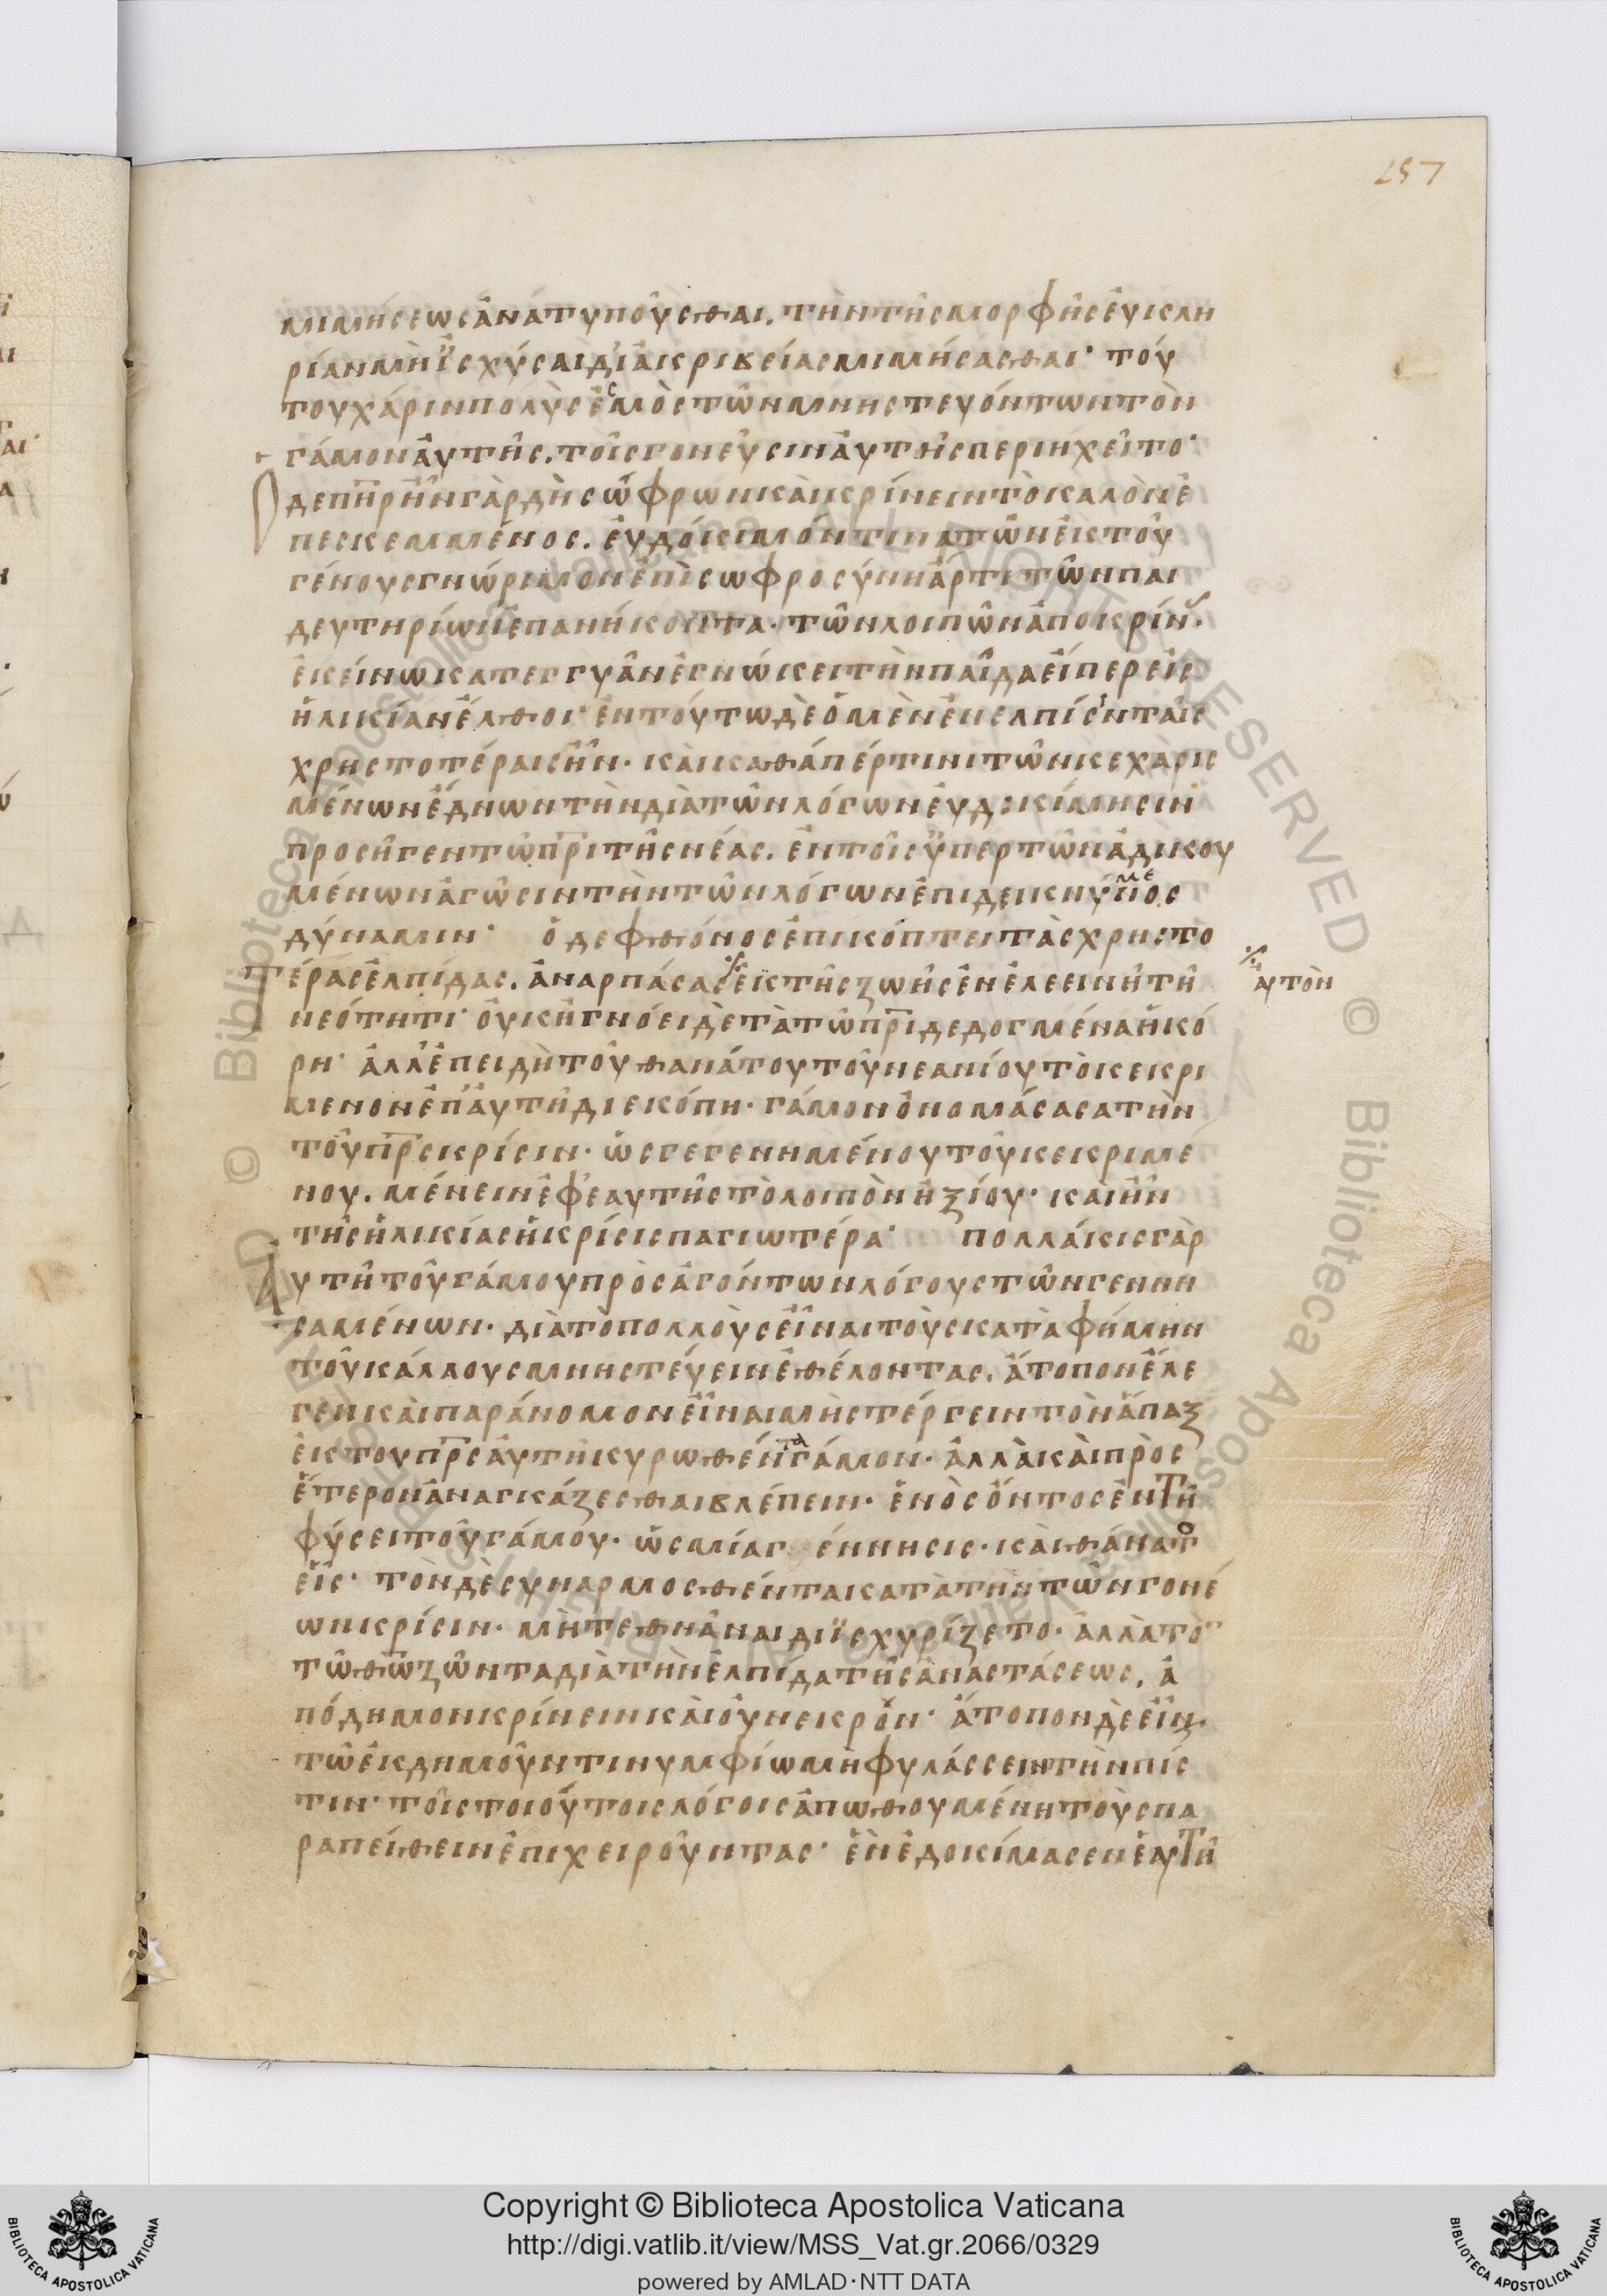 257
μιμήσεως ἀνατυποῦσθαι. τὴν τῆς μορφῆς εὐκλη
ρίαν μὴ ἰσχύσαι δι' ἀκριβείας μιμήσασθαι· τού
του χάριν πολὺς ἐσμὸς τῶν μνηστευόντων τὸν
γάμον αὐτῆς. τοῖς γονεῦσιν αὐτῆς περιηχεῖτο·
Ὁ δε πηρ ἦν γὰρ δὴ σώφρων καὶ κρίνειν τὸ καλὸν ἐ
πεσκεμμένος. εὐδόκιμόν τινα τῶν ἐκ τοῦ
γένους γνώριμον ἐπὶ σωφροσύνη ἄρτι τῶν παι
δευτηρίων ἐπανήκοντα· τῶν λοιπῶν ἀποκρίν.
ἐκείνω κατεγγυᾶν ἐγνώκει τὴν παῖδα εἴπερ εἰς
ἡλικίαν ἔλθοι· ἐν τούτω δὲ ὁ μὲν ἐν ελπίσιν ταῖς
χρηστοτέραις ἦν. καὶ καθάπέρ τινι τῶν κεχαρισ
μένων ἔδνων τὴν διὰ τῶν λόγων εὐδοκίμησιν
προσῆγεν τῶ πρι τῆς νέας. ἐν τοῖς ὑπερ τῶν ἀδικου
μένων ἀγῶσιν τὴν τῶν λόγων ἐπιδεικνύμενος
δύναμιν· ὁ δε φθόνος ἐπικόπτει τὰς χρηστο
τέρας ἐλπίδας. ἀναρπάσας ἐκ τῆς ζωῆς ἐν ἐλεεινῆ τῆ
αὐτὸν
νεότητι· οὐκ ἠγνόει δὲ τὰ τῶ πρι δεδογμένα ἡ κό
ρη· ἀλλ' ἐπειδὴ τοῦ θανάτου τοῦ νεανίου τὸ κεκρι
μενον ἐπ' αὐτῆ διεκόπη. γάμον ὀνομάσασα τὴν
τοῦ πρς κρίσιν. ὡς γεγενημένου τοῦ κεκριμέ
νου. μένειν ἐφ' εαυτῆς τὸ λοιπὸν ἠξίου· καὶ ἦν
τῆς ἡλικίας ἡ κρίσις παγιωτέρα· πολλάκις γὰρ
αυτῆ τοῦ γάμου προσαγόντων λόγους τῶν γεννη
σαμένων. διὰ τὸ πολλοὺς εἶναι τοὺς κατὰ φήμην
τοῦ κάλλους μνηστεύειν ἐθέλοντας. ἄτοπον ἔλε
γεν καὶ παράνομον εἶναι μὴ στέργειν τὸν ἅπαξ
ἐκ του πρς αὐτῆ κυρωθέντα γάμον. ἀλλὰ καὶ πρὸς
ἕτερον ἀναγκάζεσθαι βλέπειν. ἑνὸς ὄντος ἐν τῆ
φύσει τοῦ γάμου. ὡς μία γέννησις. καὶ θάνατο
εἷς· τον δὲ συναρμοσθέντα κατὰ τὴν τῶν γονέ
ων κρίσιν. μὴ τεθνᾶναι διϊσχυρίζετο. ἀλλὰ τὸ
τῶ θῶ ζῶντα διὰ τὴν ἐλπίδα τῆς ἀναστάσεως. ἀ
πόδημον κρίνειν καὶ οὐ νεκρόν· ἄτοπον δὲ εἶν.
τῶ ἐκδημοῦντι νυμφίω μὴ φυλάσσειν τὴν πίσ
τιν· τοῖς τοιούτοις λόγοις ἀπωθουμένη τοὺς πα
ραπείθειν ἐπιχειροῦντας· ἓν ἐδοκίμασεν ἑαυτῆ
Copyright © Biblioteca Apostolica Vaticana
http://digi.vatlib.it/view/MSS_Vat.gr.2066/0329
powered by AMLAD·NTT DATA